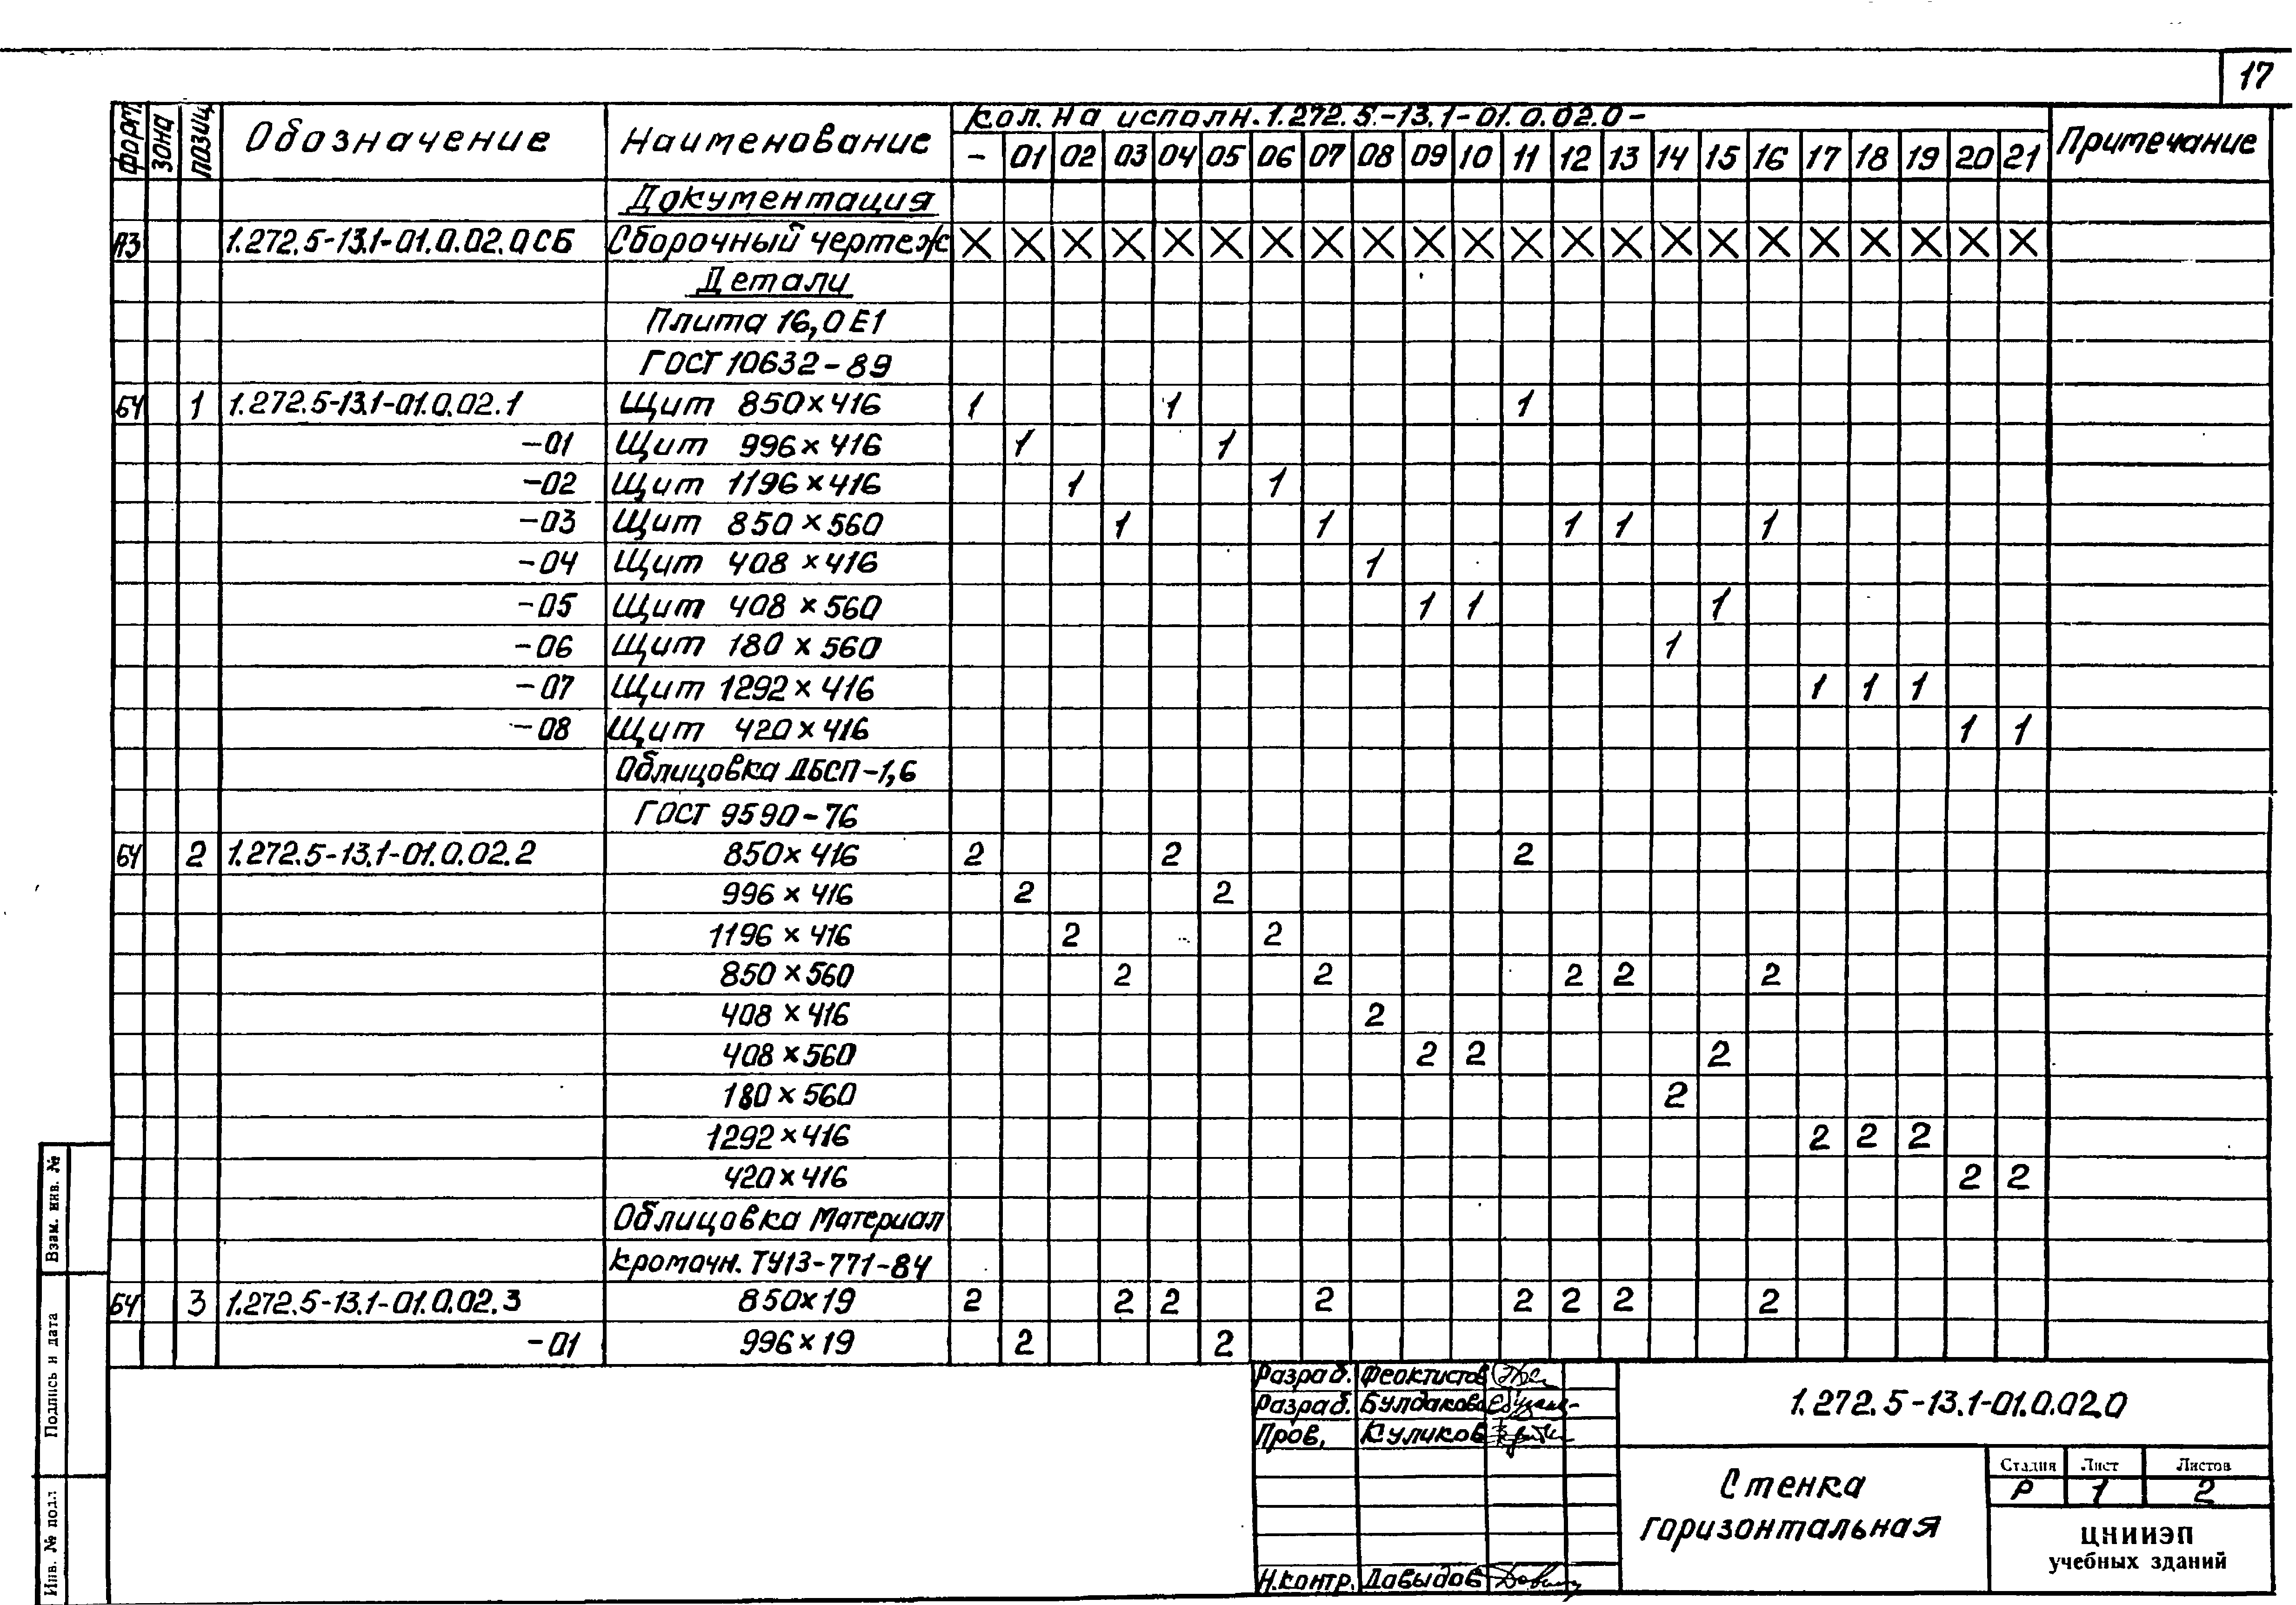 17
форм. зона позиц. Обозначение Наименование кол. на исполн. 1.272.5-13.1-01.0.02.0- Примечание
- 01 02 03 04 05 06 07 08 09 10 11 12 13 14 15 16 17 18 19 20 21
Документация
А3 1.272.5-13.1-01.0.02.0СБ Сборочный чертеж X X X X X X X X X X X X X X X X X X X X X X
Детали
Плита 16,0 Е1
ГОСТ 10632-89
БЧ 1 1.272.5-13.1-01.0.02.1 Щит 850×416 1 1 1
-01 Щит 996×416 1 1
-02 Щит 1196×416 1 1
-03 Щит 850×560 1 1 1 1 1
-04 Щит 408×416 1
-05 Щит 408×560 1 1 1
-06 Щит 180×560 1
-07 Щит 1292×416 1 1 1
-08 Щит 420×416 1 1
Облицовка ДБСП-1,6
ГОСТ 9590-76
БЧ 2 1.272.5-13.1-01.0.02.2 850×416 2 2 2
996×416 2 2
1196×416 2 2
850×560 2 2 2 2 2
408×416 2
408×560 2 2 2
180×560 2
1292×416 2 2 2
420×416 2 2
Облицовка Материал
кромочн. ТУ13-771-84
БЧ 3 1.272.5-13.1-01.0.02.3 850×19 2 2 2 2 2 2 2 2
-01 996×19 2 2
Разраб. Феоктистов
Разраб. Булдакова
Пров. Куликов
Н.контр. Давыдов
1.272.5-13.1-01.0.02.0
Стенка
горизонтальная
Стадия Лист Листов
Р 1 2
ЦНИИЭП
учебных зданий
Взам. инв. №
Подпись и дата
Инв. № подл